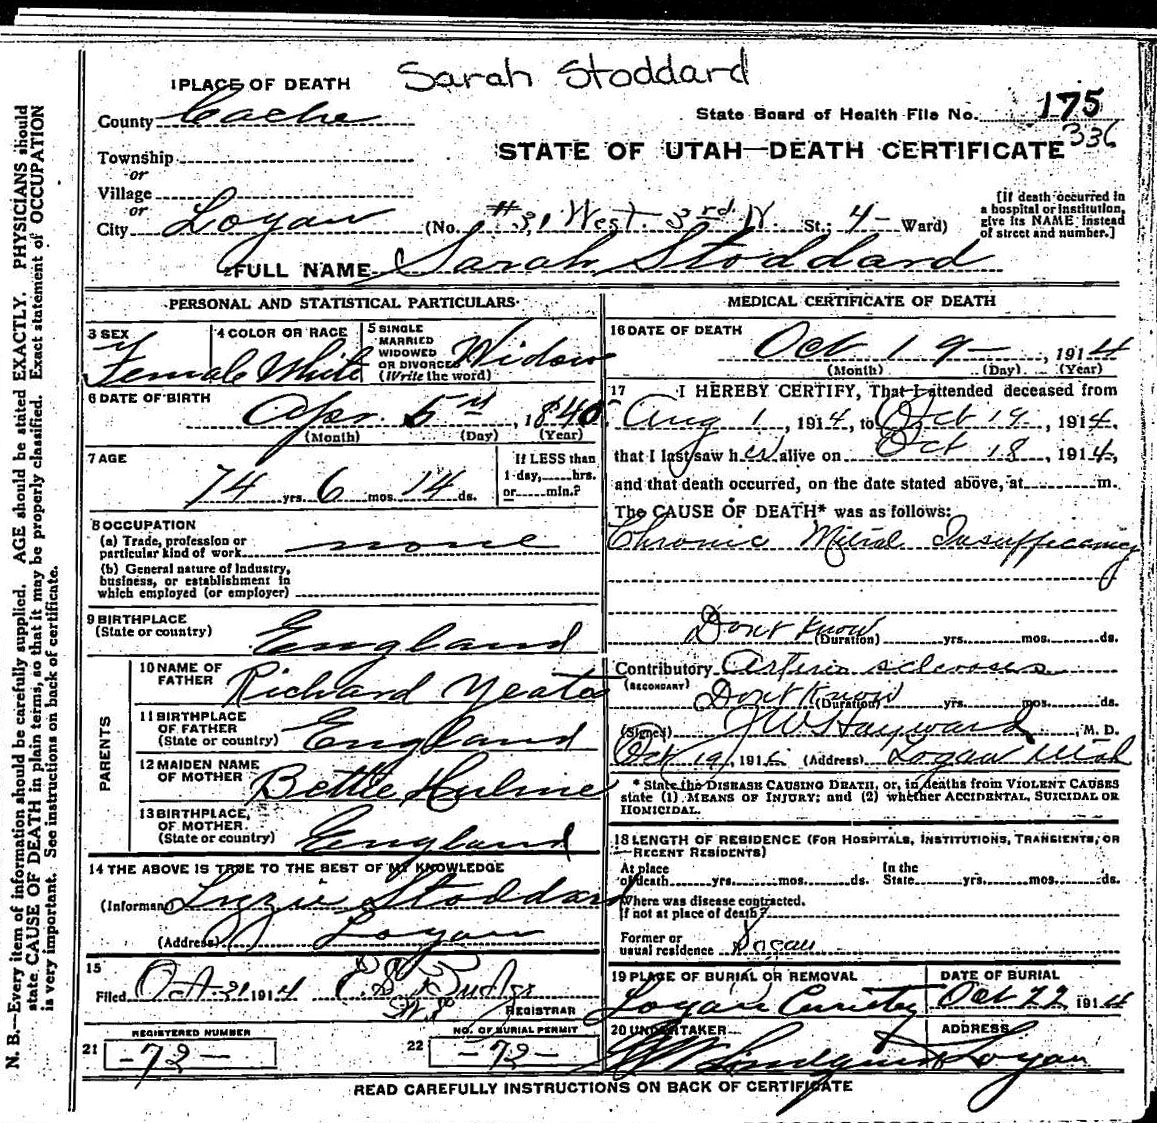 Sarah Stoddard
1 PLACE OF DEATH
County Cache
State Board of Health File No. 175
336
STATE OF UTAH—DEATH CERTIFICATE
Township
or
Village
or
City Logan (No. #31 West 3rd N. St.; 4 Ward)
[If death occurred in
a hospital or institution,
give its NAME instead
of street and number.]
2 FULL NAME Sarah Stoddard
PERSONAL AND STATISTICAL PARTICULARS
3 SEX Female
4 COLOR OR RACE White
5 SINGLE
MARRIED
WIDOWED
OR DIVORCED
(Write the word) Widow
6 DATE OF BIRTH
Apr. 5, 1840
(Month) (Day) (Year)
7 AGE
74 yrs. 6 mos. 14 ds.
If LESS than
1 day, hrs.
or min.?
8 OCCUPATION
(a) Trade, profession or
particular kind of work none
(b) General nature of industry,
business, or establishment in
which employed (or employer)
9 BIRTHPLACE
(State or country) England
PARENTS
10 NAME OF
FATHER Richard Yeates
11 BIRTHPLACE
OF FATHER
(State or country) England
12 MAIDEN NAME
OF MOTHER Bettie Hulme
13 BIRTHPLACE
OF MOTHER
(State or country) England
14 THE ABOVE IS TRUE TO THE BEST OF MY KNOWLEDGE
(Informant) Lizzie Stoddard
(Address) Logan
15
Filed Oct 21 1914
REGISTRAR
REGISTERED NUMBER
21 -72-
NO. OF BURIAL PERMIT
22 -72-
MEDICAL CERTIFICATE OF DEATH
16 DATE OF DEATH
Oct 19, 1914
(Month) (Day) (Year)
17 I HEREBY CERTIFY, That I attended deceased from
Aug 1, 1914, to Oct 19, 1914,
that I last saw her alive on Oct 18, 1914,
and that death occurred, on the date stated above, at m.
The CAUSE OF DEATH* was as follows:
Chronic Mitral Insufficancy
Dont Know (Duration) yrs. mos. ds.
Contributory Arterio sclerosis
(SECONDARY)
Dont Know (Duration) yrs. mos. ds.
(Signed) J W Hayward, M. D.
Oct 19, 191 (Address) Logan Utah
* State the DISEASE CAUSING DEATH, or, in deaths from VIOLENT CAUSES
state (1) MEANS OF INJURY; and (2) whether ACCIDENTAL, SUICIDAL OR
HOMICIDAL.
18 LENGTH OF RESIDENCE (FOR HOSPITALS, INSTITUTIONS, TRANSIENTS, OR
RECENT RESIDENTS)
At place
of death yrs. mos. ds.
In the
State yrs. mos. ds.
Where was disease contracted.
If not at place of death?
Former or
usual residence Logan
19 PLACE OF BURIAL OR REMOVAL
Logan
DATE OF BURIAL
Oct 22 1914
20 UNDERTAKER
ADDRESS
Logan
READ CAREFULLY INSTRUCTIONS ON BACK OF CERTIFICATE
N. B.—Every item of information should be carefully supplied. AGE should be stated EXACTLY. PHYSICIANS should
state CAUSE OF DEATH in plain terms, so that it may be properly classified. Exact statement of OCCUPATION
is very important. See instructions on back of certificate.